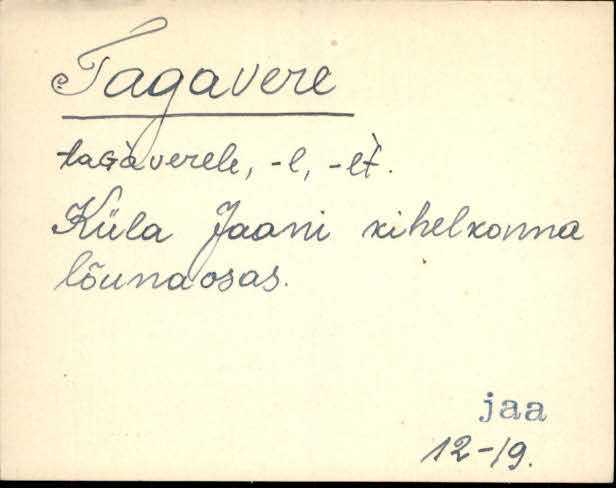 Tagavere
taGàverele, -l, -lt̀.
Küla Jaani kihelkonna
lõunaosas.
jaa
12-19.